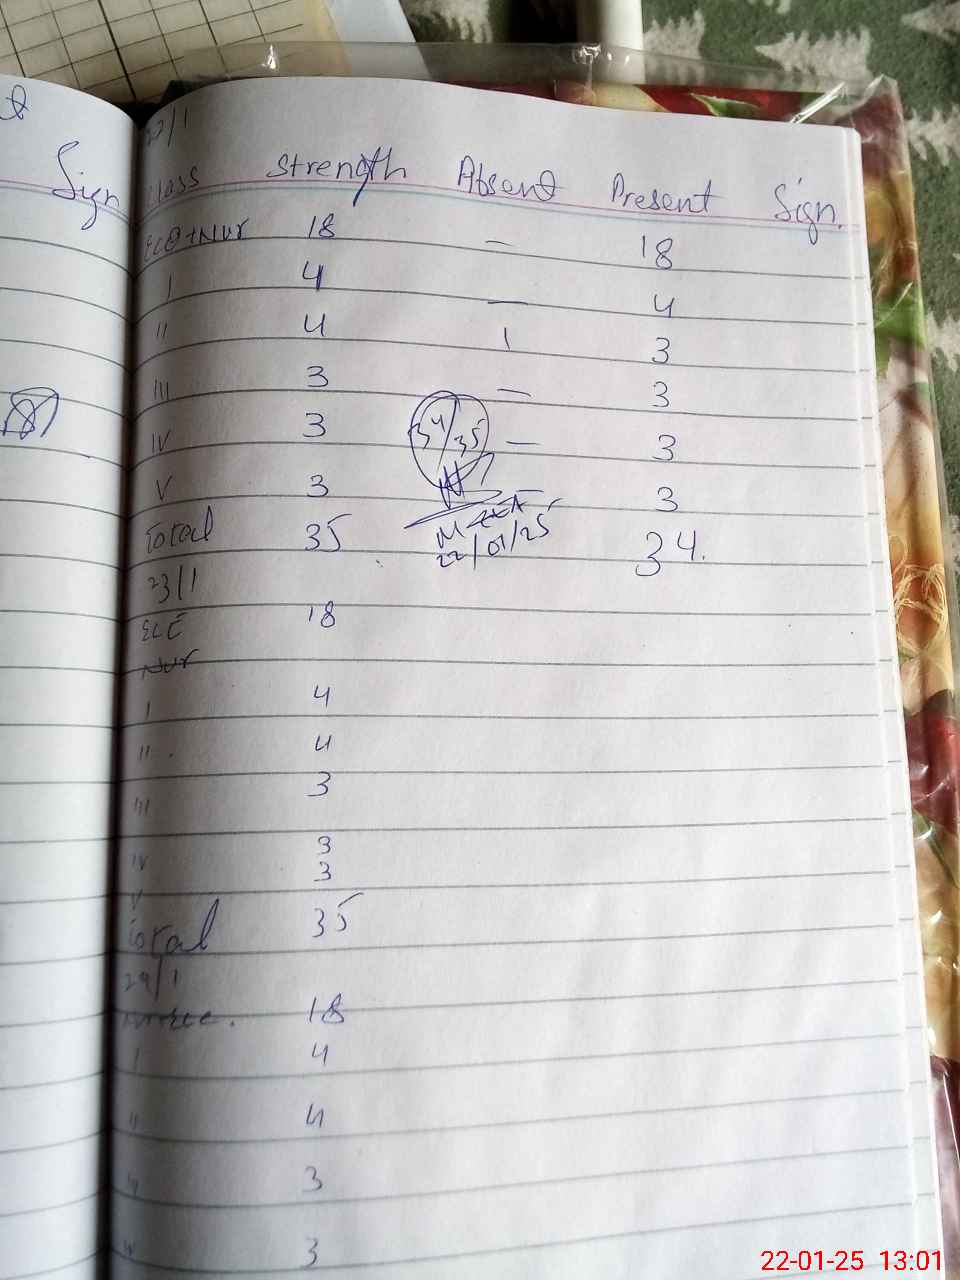 Sign
22/1
Class Strength Absent Present Sign.
ECE+Nur 18 – 18
I 4 – 4
II 4 1 3
III 3 – 3
IV 3 – 3
34/35
V 3 3
Total 35 34.
22/01/25
23/1
ECE 18
Nur
I 4
II 4
III 3
IV 3
V 3
Total 35
24/1
18
I 4
II 4
3
3
22-01-25 13:01